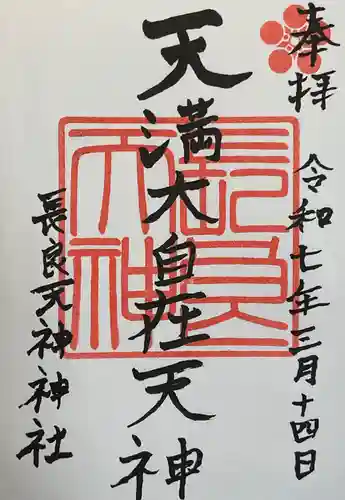 奉拝
令和七年三月十四日
天満大自在天神
長良天神神社